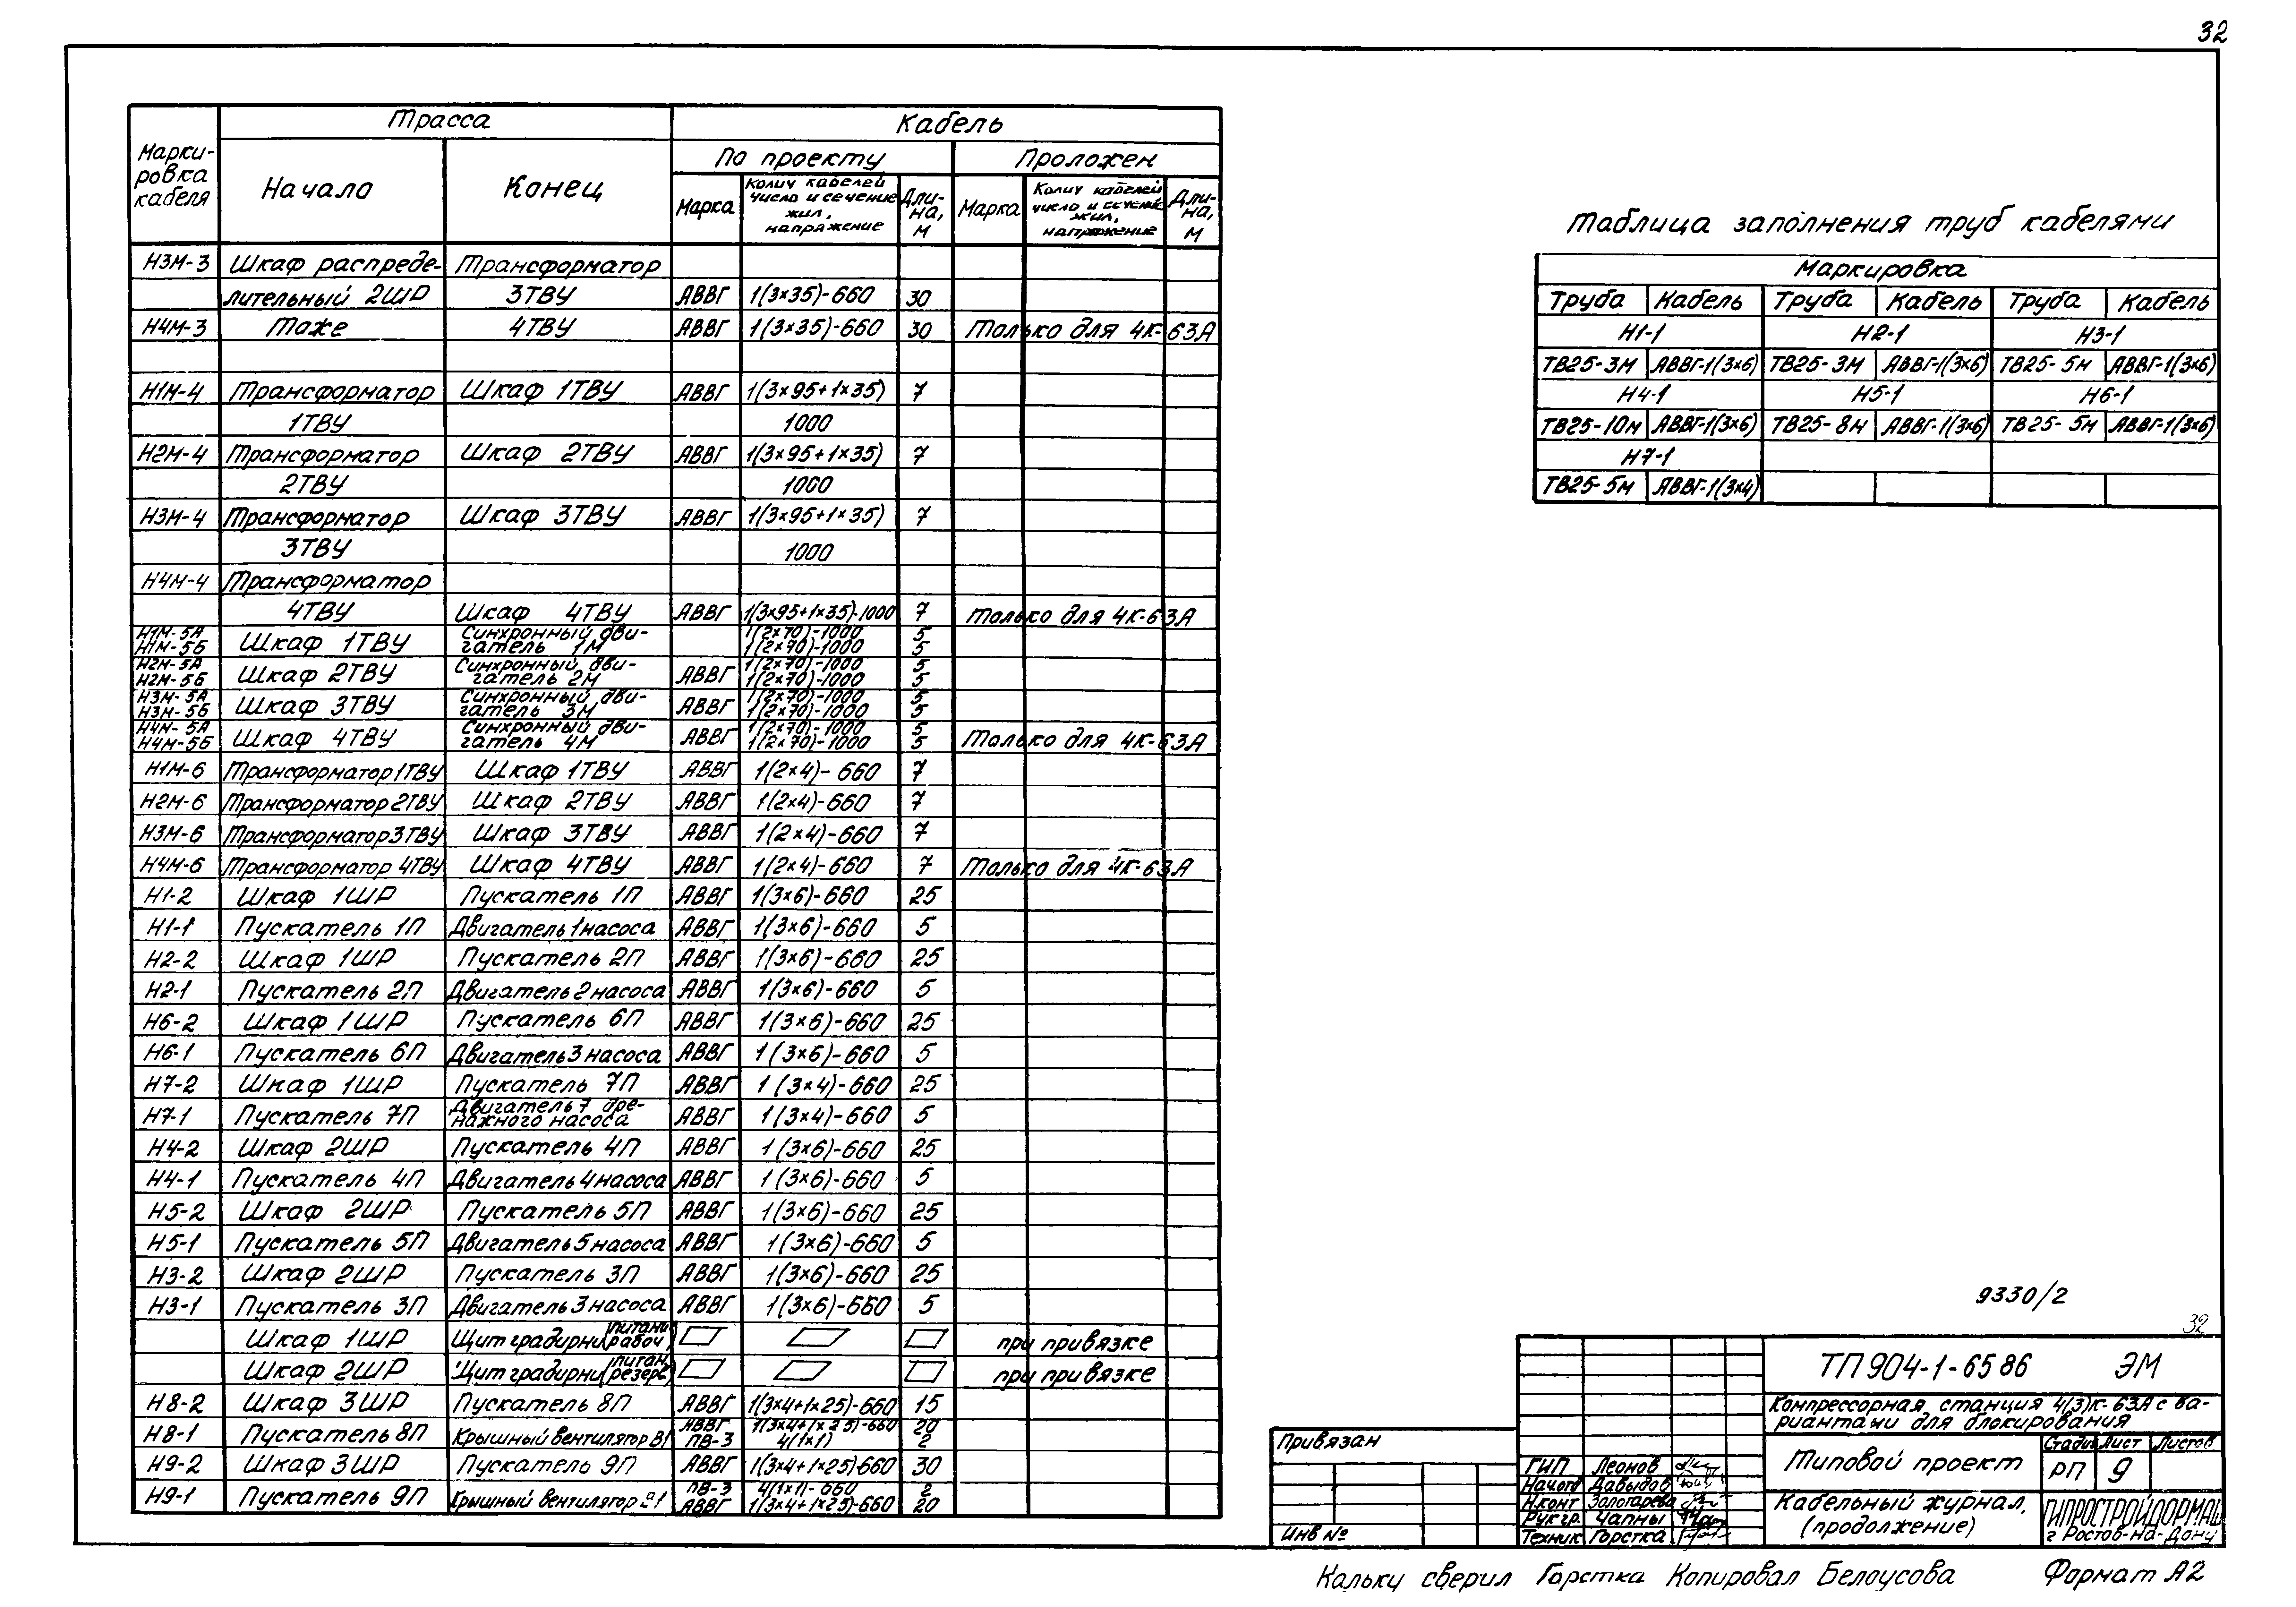 32
Марки-
ровка
кабеля
Трасса
Кабель
Начало
Конец
По проекту
Проложен
Марка
Колич кабелей
число и сечение
жил,
напряжение
Дли-
на,
м
Марка
Колич кабелей
число и сечение
жил,
напряжение
Дли-
на,
м
Н3М-3 Шкаф распреде- Трансформатор
лительный 2ШР 3ТВУ АВВГ 1(3×35)-660 30
Н4М-3 Тоже 4ТВУ АВВГ 1(3×35)-660 30 Только для 4К-63А
Н1М-4 Трансформатор Шкаф 1ТВУ АВВГ 1(3×95+1×35) 7
1ТВУ 1000
Н2М-4 Трансформатор Шкаф 2ТВУ АВВГ 1(3×95+1×35) 7
2ТВУ 1000
Н3М-4 Трансформатор Шкаф 3ТВУ АВВГ 1(3×95+1×35) 7
3ТВУ 1000
Н4М-4 Трансформатор
4ТВУ Шкаф 4ТВУ АВВГ 1(3×95+1×35)-1000 7 Только для 4К-63А
Н1М-5А Шкаф 1ТВУ Синхронный дви- 1(2×70)-1000 5
Н1М-5Б гатель 1М 1(2×70)-1000 5
Н2М-5А Шкаф 2ТВУ Синхронный дви- АВВГ 1(2×70)-1000 5
Н2М-5Б гатель 2М 1(2×70)-1000 5
Н3М-5А Шкаф 3ТВУ Синхронный дви- АВВГ 1(2×70)-1000 5
Н3М-5Б гатель 3М 1(2×70)-1000 5
Н4М-5А Шкаф 4ТВУ Синхронный дви- АВВГ 1(2×70)-1000 5
Н4М-5Б гатель 4М 1(2×70)-1000 5 Только для 4К-63А
Н1М-6 Трансформатор 1ТВУ Шкаф 1ТВУ АВВГ 1(2×4)-660 7
Н2М-6 Трансформатор 2ТВУ Шкаф 2ТВУ АВВГ 1(2×4)-660 7
Н3М-6 Трансформатор 3ТВУ Шкаф 3ТВУ АВВГ 1(2×4)-660 7
Н4М-6 Трансформатор 4ТВУ Шкаф 4ТВУ АВВГ 1(2×4)-660 7 Только для 4К-63А
Н1-2 Шкаф 1ШР Пускатель 1П АВВГ 1(3×6)-660 25
Н1-1 Пускатель 1П Двигатель 1 насоса АВВГ 1(3×6)-660 5
Н2-2 Шкаф 1ШР Пускатель 2П АВВГ 1(3×6)-660 25
Н2-1 Пускатель 2П Двигатель 2 насоса АВВГ 1(3×6)-660 5
Н6-2 Шкаф 1ШР Пускатель 6П АВВГ 1(3×6)-660 25
Н6-1 Пускатель 6П Двигатель 3 насоса АВВГ 1(3×6)-660 5
Н7-2 Шкаф 1ШР Пускатель 7П АВВГ 1(3×4)-660 25
Н7-1 Пускатель 7П Двигатель 7 дре- АВВГ 1(3×4)-660 5
нажного насоса
Н4-2 Шкаф 2ШР Пускатель 4П АВВГ 1(3×6)-660 25
Н4-1 Пускатель 4П Двигатель 4 насоса АВВГ 1(3×6)-660 5
Н5-2 Шкаф 2ШР Пускатель 5П АВВГ 1(3×6)-660 25
Н5-1 Пускатель 5П Двигатель 5 насоса АВВГ 1(3×6)-660 5
Н3-2 Шкаф 2ШР Пускатель 3П АВВГ 1(3×6)-660 25
Н3-1 Пускатель 3П Двигатель 3 насоса АВВГ 1(3×6)-660 5
Шкаф 1ШР Щит градирни (питани рабоч) при привязке
Шкаф 2ШР Щит градирни (питан. резерв) при привязке
Н8-2 Шкаф 3ШР Пускатель 8П АВВГ 1(3×4+1×25)-660 15
Н8-1 Пускатель 8П Крышный вентилятор В1 АВВГ 1(3×4+1×25)-660 20
ПВ-3 4(1×1) 2
Н9-2 Шкаф 3ШР Пускатель 9П АВВГ 1(3×4+1×25)-660 30
Н9-1 Пускатель 9П Крышный вентилятор ПВ-3 4(1×1)-660 2
АВВГ 1(3×4+1×25)-660 20
Таблица заполнения труб кабелями
Маркировка
Труба Кабель Труба Кабель Труба Кабель
Н1-1 Н2-1 Н3-1
ТВ25-3м АВВГ-1(3×6) ТВ25-3м АВВГ-1(3×6) ТВ25-5м АВВГ-1(3×6)
Н4-1 Н5-1 Н6-1
ТВ25-10м АВВГ-1(3×6) ТВ25-8м АВВГ-1(3×6) ТВ25-5м АВВГ-1(3×6)
Н7-1
ТВ25-5м АВВГ-1(3×4)
9330/2
32
ТП 904-1-65 86 ЭМ
Компрессорная станция 4(3)К-63А с ва-
риантами для блокирования
Привязан
Инв №
ГИП Леонов
Нач.отд Давыдов
Н.конт Золотарева
Рук.гр. Чапны
Техник Горстка
Типовой проект
Стадия Лист Листов
РП 9
Кабельный журнал.
(продолжение)
ГИПРОСТРОЙДОРМАШ
г Ростов-на-Дону
Кальку сверил Горстка Копировал Белоусова Формат А2